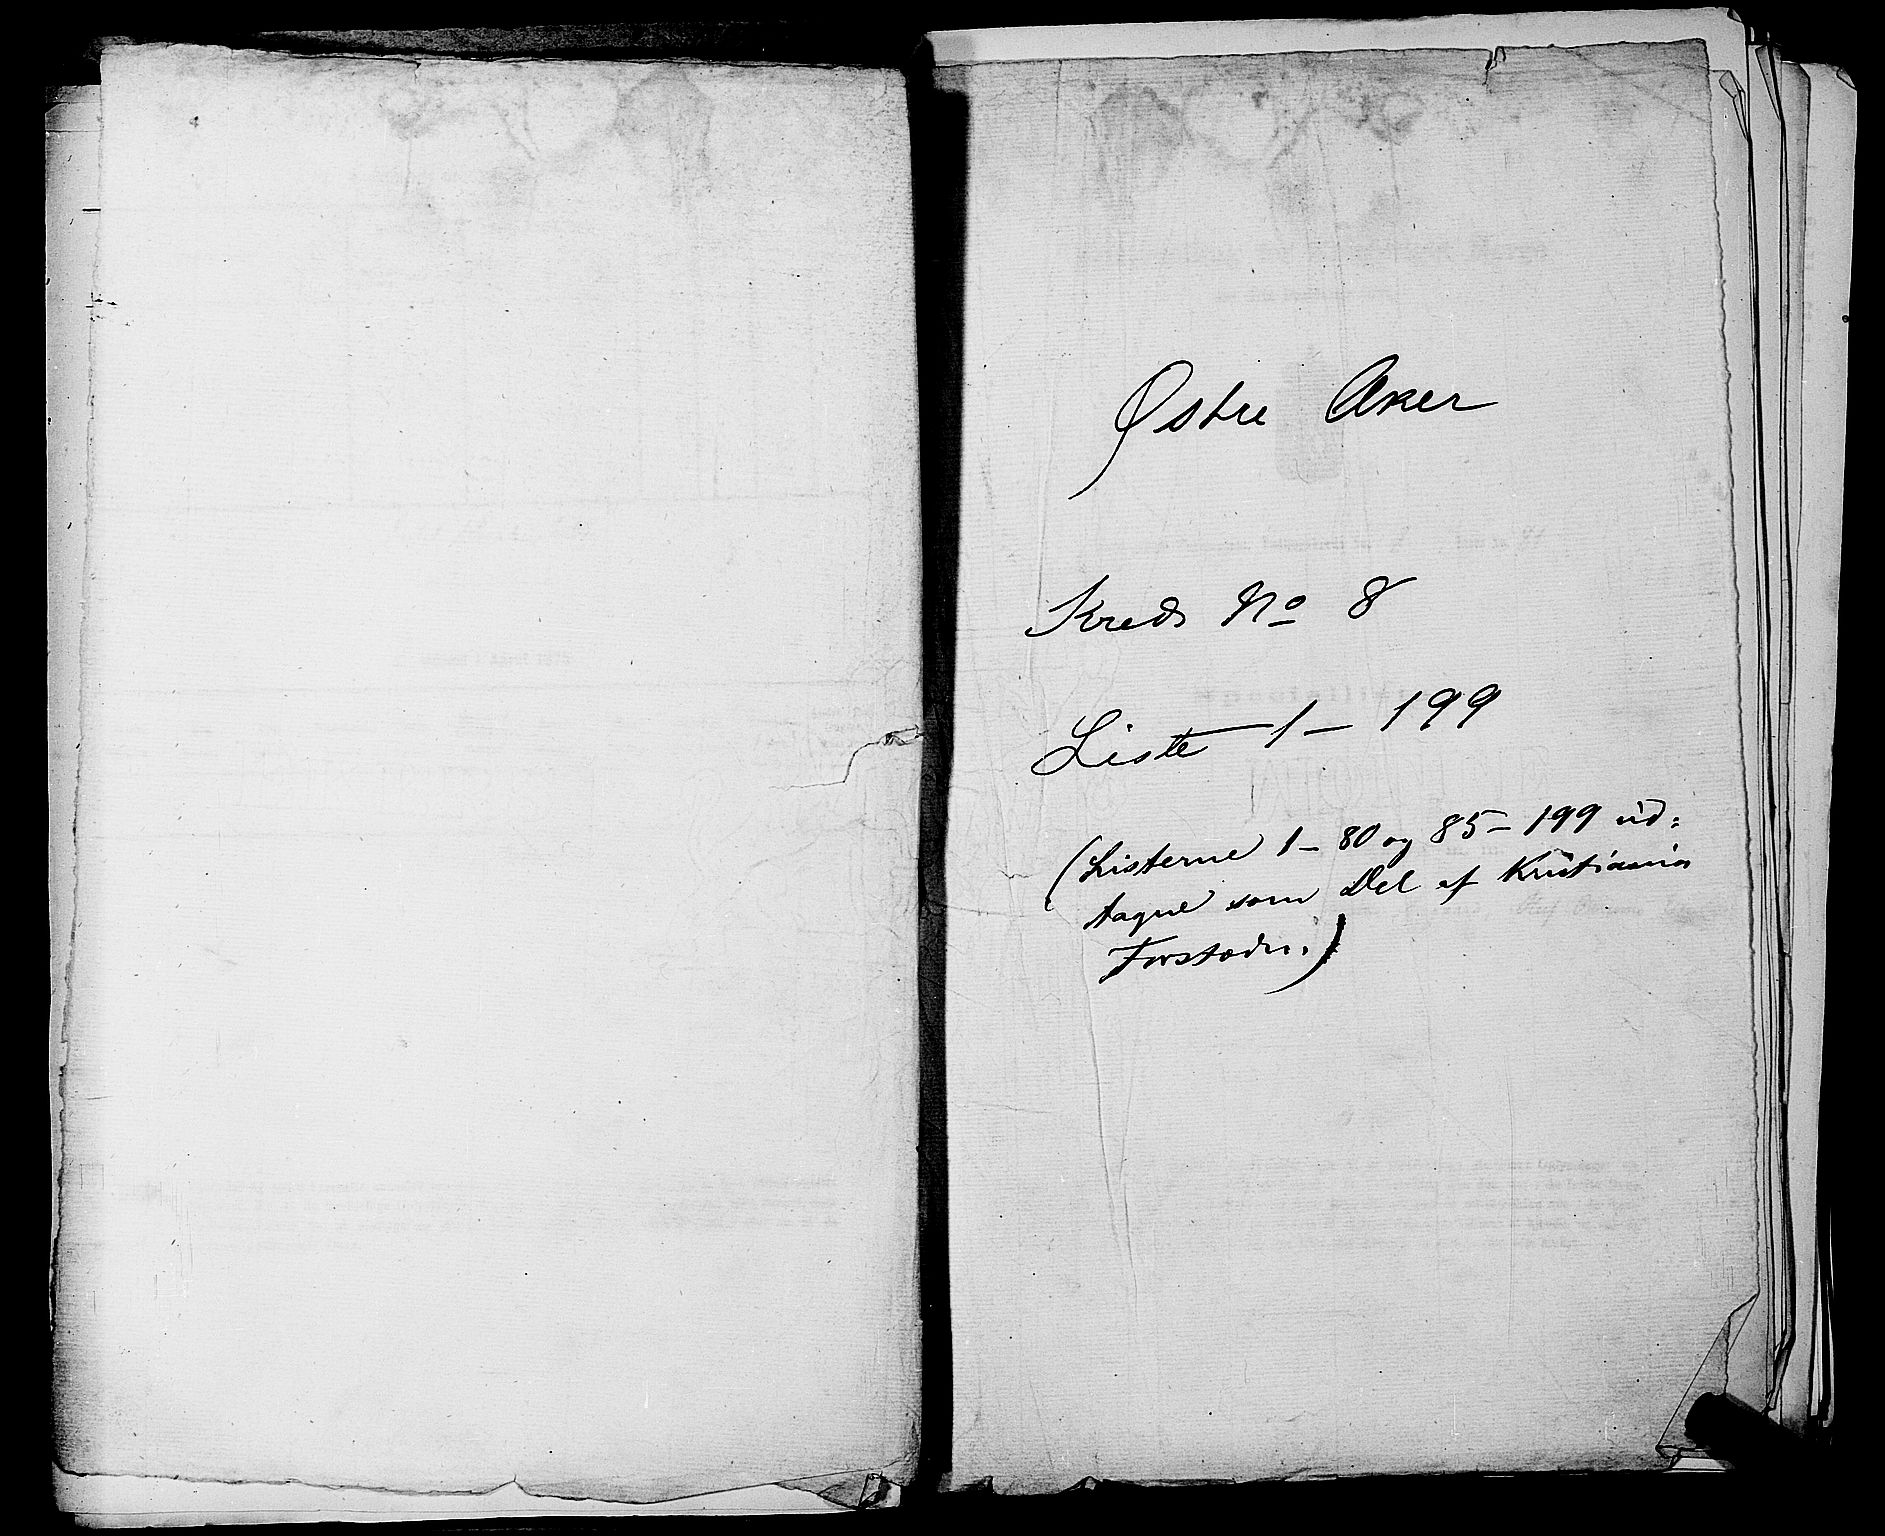 Østre Aker
Kreds No 8
Liste 1 – 199
(Listerne 1 – 80 og 85 – 199 ud=
tagne som Del af Kristiania
Forstæder.)